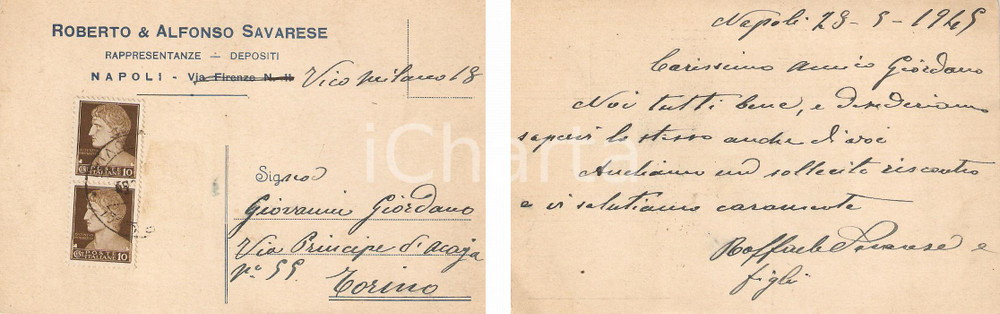 ROBERTO & ALFONSO SAVARESE
RAPPRESENTANZE — DEPOSITI
NAPOLI - Via Firenze N. 11 Vico Milano 18
POSTE
ITALIANE
10
POSTE
ITALIANE
10
iCharta
Signor
Giovanni Giordano
Via Principe d'Acaja
n° 55
Torino
Napoli 28-5-1945
Carissimo amico Giordano
Noi tutti bene, e desideriamo
sapervi lo stesso anche di voi
Andiamo un sollecito riscontro
e vi salutiamo caramente
Raffaele Savarese e
figli